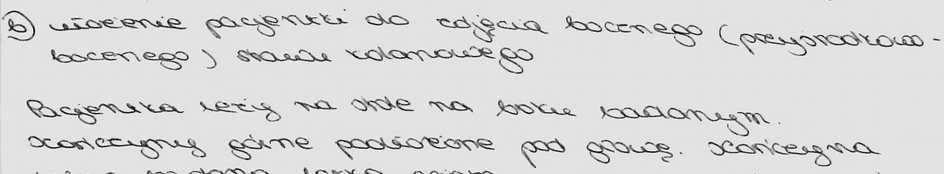 b) ułożenie pacjentki do zdjęcia bocznego (przyśrodkowo-
bocznego) stawu kolanowego
Pacjentka leży na stole na boku badanym.
Kończyny górne podłożone pod głowę. Kończyna